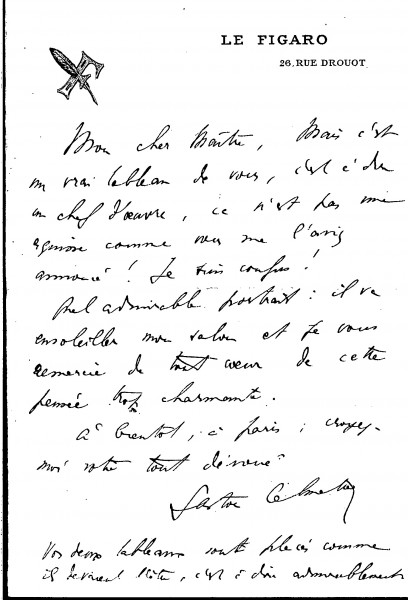 LE FIGARO
26, RUE DROUOT
Mon cher Maître, Mais c'est
un vrai tableau de vous, c'est à dire
un chef d'œuvre, ce n'est pas une
comme vous me l'aviez
annoncé ! Je suis confus !
Quel admirable portrait : il va
ensoleiller mon salon et je vous
remercie de tout cœur de cette
pensée trop charmante.
À bientôt, à Paris ; croyez-
moi votre tout dévoué
Gaston Calmette
Vos deux tableaux sont placés comme
ils devaient l'être, c'est à dire admirablement